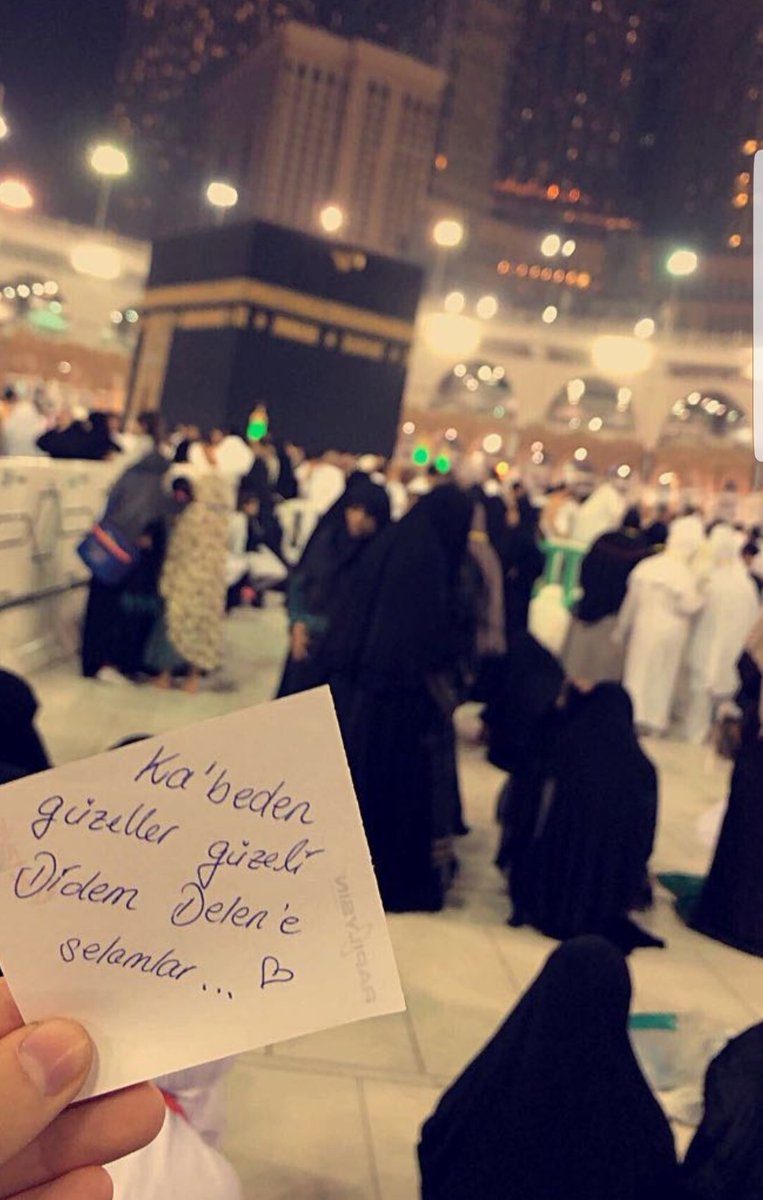 Ka'beden
güzeller güzeli
Didem Delen'e
selamlar... ♡